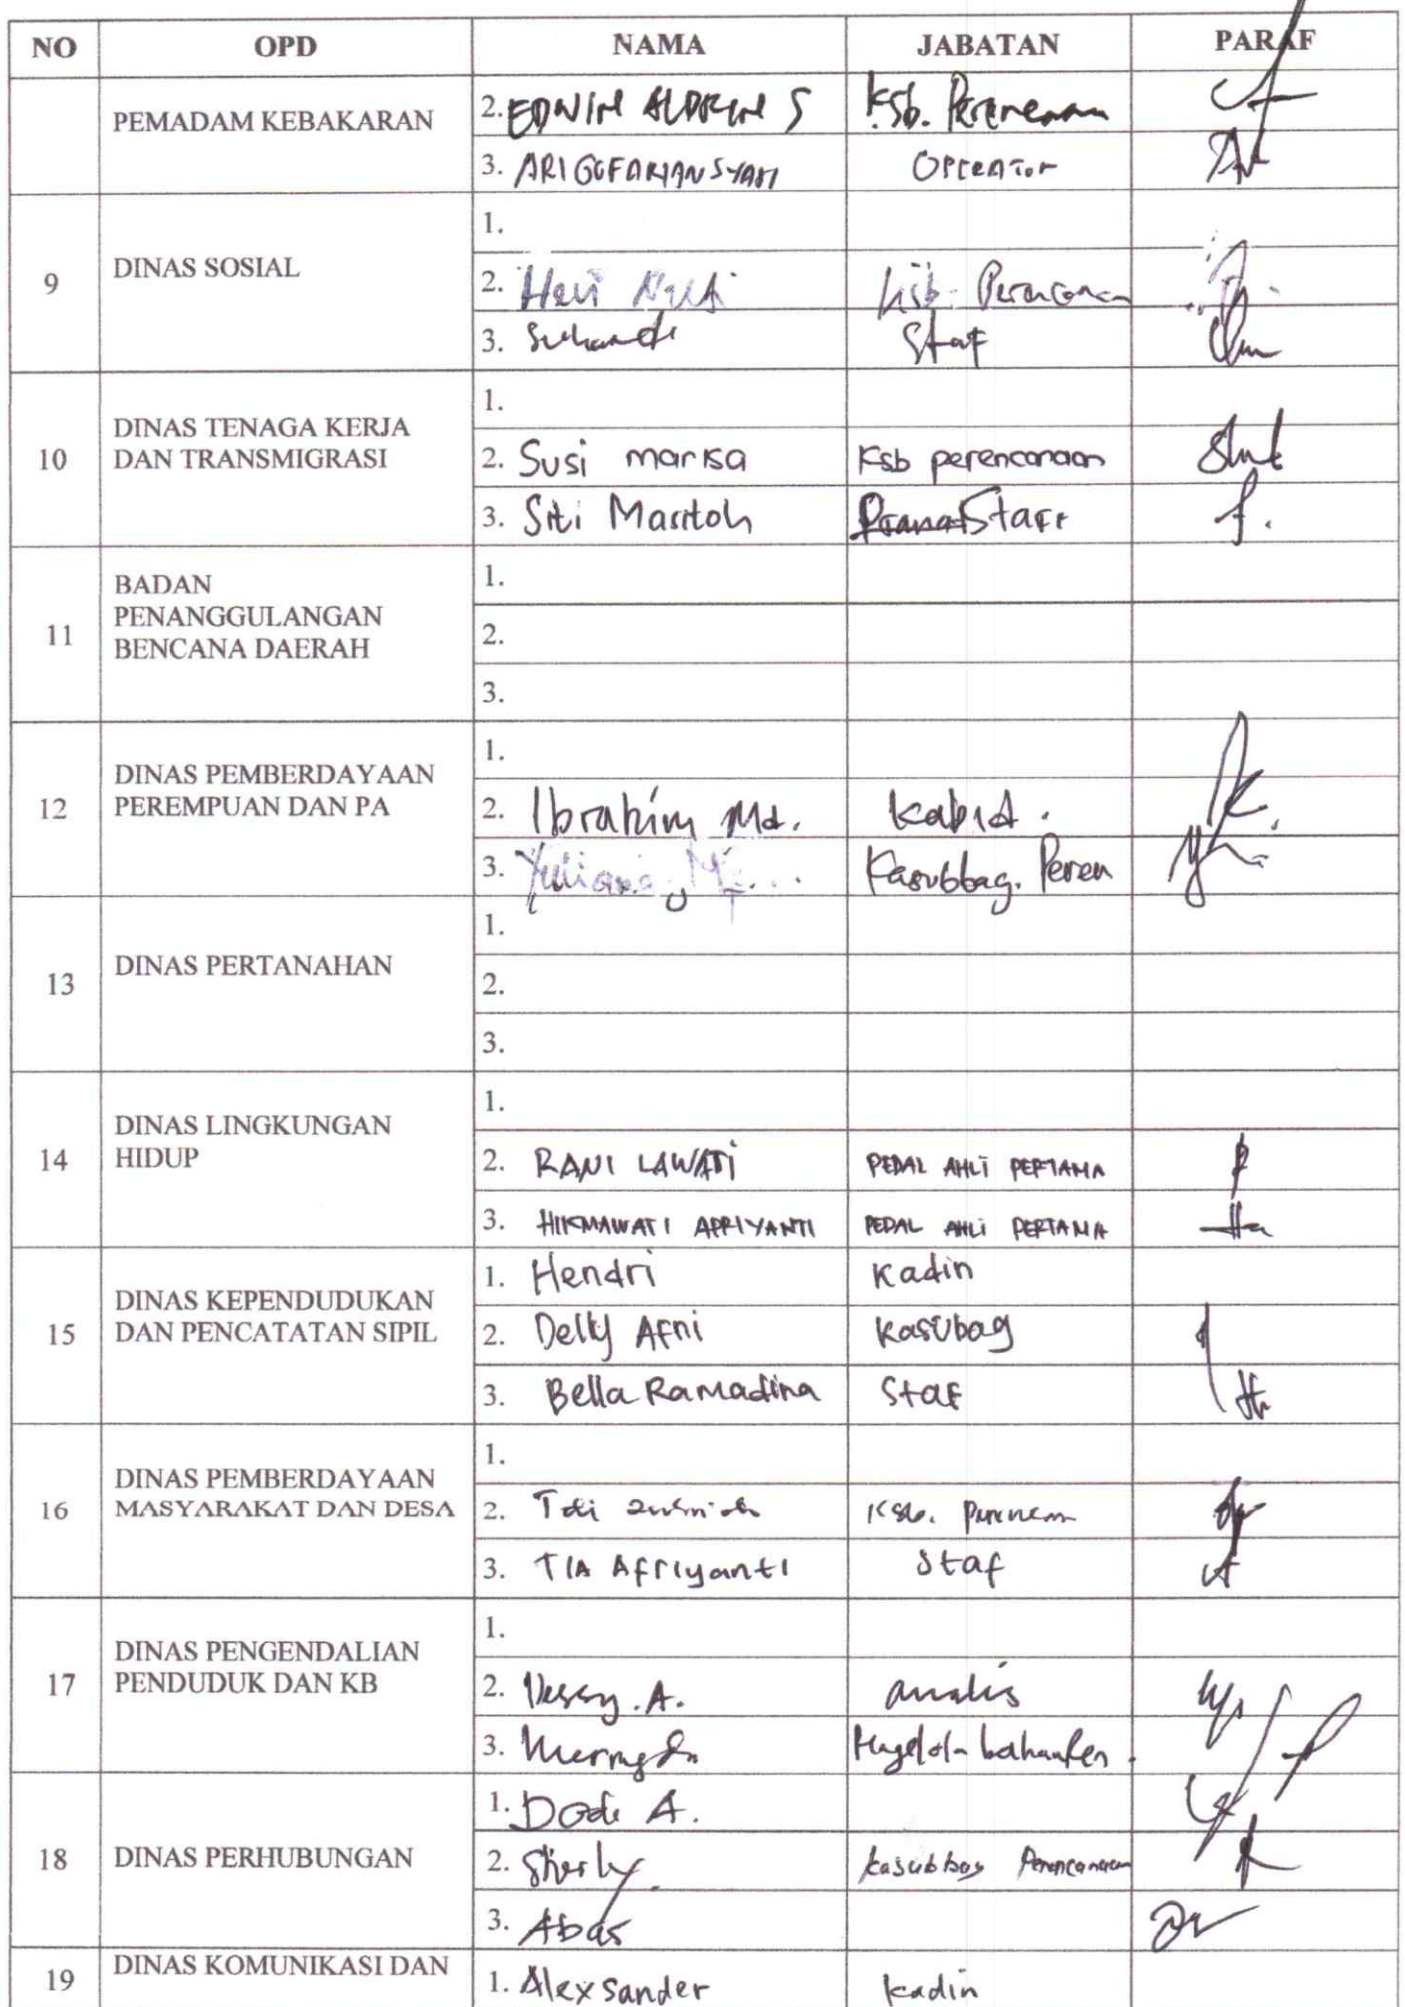 NO OPD NAMA JABATAN PARAF
PEMADAM KEBAKARAN
2. EDWIN ALDRIN S Ksb.
3. ARI GUFARIANSYAH OPERATOR
9 DINAS SOSIAL
1.
2. Ksb. Perencanaan
3. Suhandi Staf
10 DINAS TENAGA KERJA
DAN TRANSMIGRASI
1.
2. Susi marisa Ksb perencanaan
3. Siti Maritoh Staff
11 BADAN
PENANGGULANGAN
BENCANA DAERAH
1.
2.
3.
12 DINAS PEMBERDAYAAN
PEREMPUAN DAN PA
1.
2. Ibrahim Md. Kabid.
3. Yuliana Kasubbag. Peren
13 DINAS PERTANAHAN
1.
2.
3.
14 DINAS LINGKUNGAN
HIDUP
1.
2. RANI LAWATI PEDAL AHLI PERTAMA
3. HIKMAWATI APRIYANTI PEDAL AHLI PERTAMA
15 DINAS KEPENDUDUKAN
DAN PENCATATAN SIPIL
1. Hendri Kadin
2. Delly Afni Kasubag
3. Bella Ramadina Staf
16 DINAS PEMBERDAYAAN
MASYARAKAT DAN DESA
1.
2. Ksb.
3. TIA Afriyanti Staf
17 DINAS PENGENDALIAN
PENDUDUK DAN KB
1.
2. Dessy. A. analis
3.
18 DINAS PERHUBUNGAN
1. Dodi A.
2. Sherly Kasubbag Perencanaan
3. Abas
19 DINAS KOMUNIKASI DAN
1. Alexsander kadin